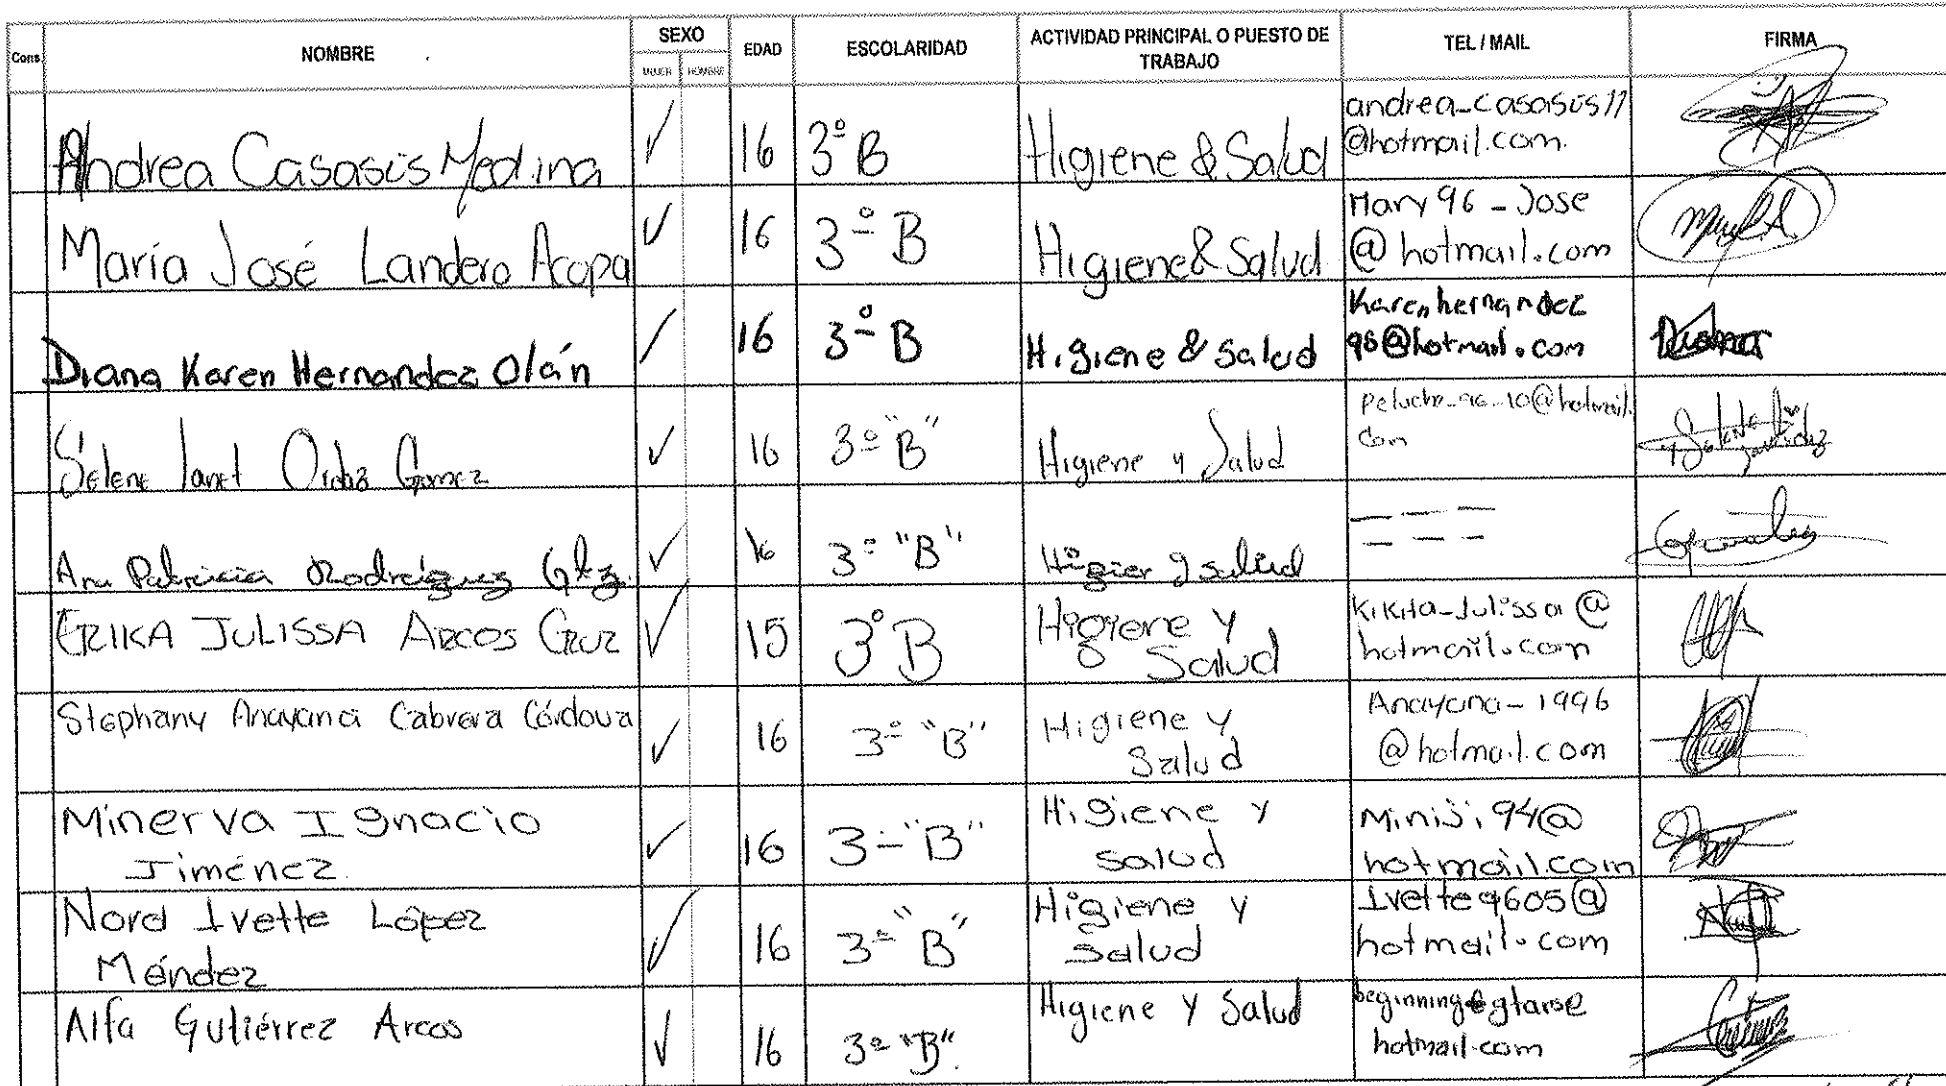 Cons. NOMBRE SEXO EDAD ESCOLARIDAD ACTIVIDAD PRINCIPAL O PUESTO DE TRABAJO TEL / MAIL FIRMA
MUJER HOMBRE
Andrea Casasús Medina ✓ 16 3º B Higiene & Salud andrea_casasus17
@hotmail.com.
María José Landero Acopa ✓ 16 3º B Higiene & Salud Mary96_Jose
@hotmail.com
Diana Karen Hernandez Olán / 16 3º B Higiene & Salud Karenhernandez
98@hotmail.com
Selene Janet Ordaz Gomez ✓ 16 3º "B" Higiene y Salud peluche_96_10@hotmail.
com
Ana Patricia Rodreiguez Glz. ✓ 16 3º "B" — — —
— — —
ERIKA JULISSA ARCOS CRUZ ✓ 15 3º B Higiene y
Salud kikita_Julissa@
hotmail.com
Stephany Anayanci Cabrera Córdova ✓ 16 3º "B" Higiene y
Salud Anayana_1996
@hotmail.com
Minerva Ignacio
Jiménez. ✓ 16 3º "B" Higiene y
salud Miniji94@
hotmail.com
Nord Ivette López
Méndez ✓ 16 3º "B" Higiene y
Salud Ivette9605@
hotmail.com
Alfa Gutiérrez Arcos ✓ 16 3º "B". Higiene y Salud
hotmail.com